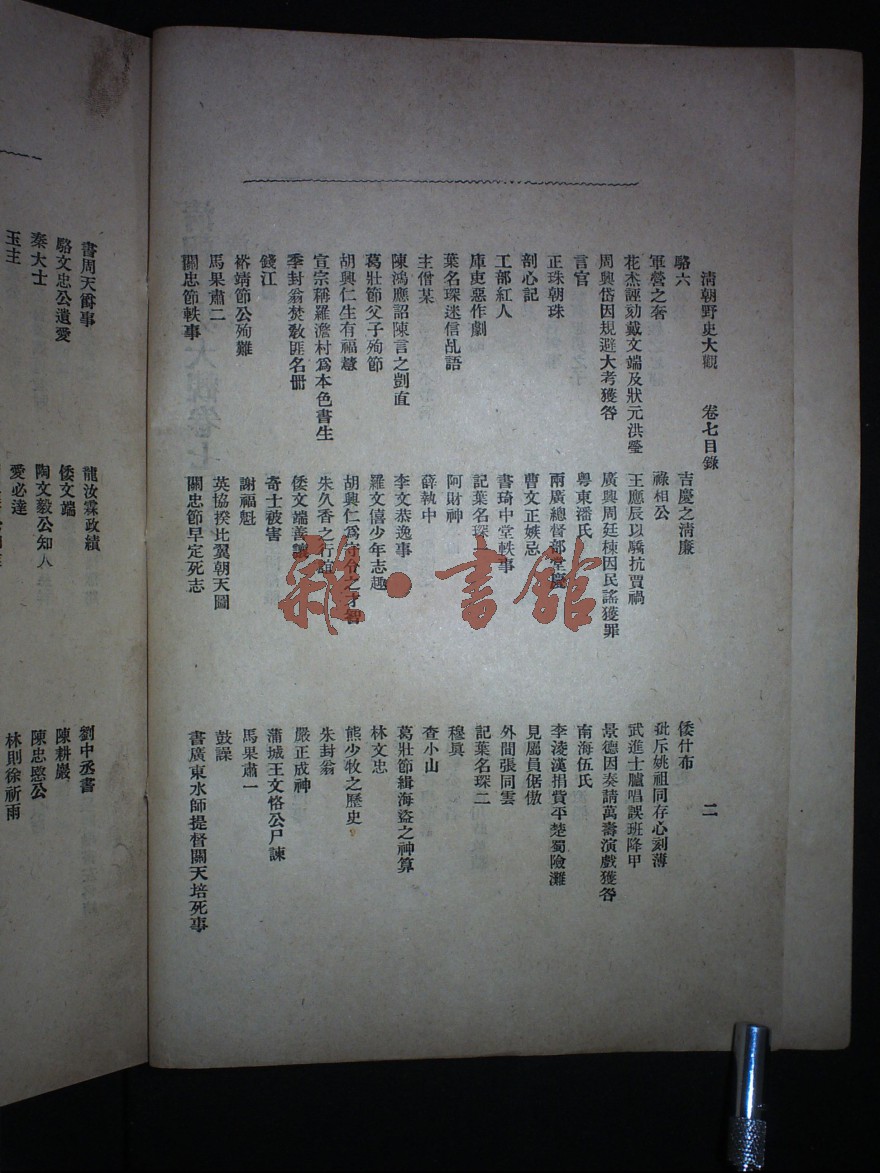 清朝野史大觀　卷七目錄　二
駱六　吉慶之淸廉　倭什布
軍營之奢　祿相公　批斥姚祖同存心刻薄
花杰誣劾戴文端及狀元洪瑩　王應辰以驕抗賈禍　武進士臚唱誤班降甲
周興岱因規避大考獲咎　廣興周廷棟因民謠獲罪　景德因奏請萬壽演戲獲咎
言官　粵東潘氏　南海伍氏
正珠朝珠　兩廣總督部堂　李淩漢捐貲平楚蜀險灘
剖心記　曹文正嫉忌　見屬員倨傲
工部紅人　書琦中堂軼事　外間張同雲
庫吏惡作劇　記葉名琛一　記葉名琛二
葉名琛迷信乩語　阿財神　穆眞
主僧某　薛執中　查小山
陳鴻應詔陳言之剴直　李文恭逸事　葛壯節緝海盜之神算
葛壯節父子殉節　羅文僖少年志趣　林文忠
胡興仁生有福慧　胡興仁爲守令之才智　熊少牧之歷史
宣宗稱羅澹村爲本色書生　朱久香之行誼　朱封翁
季封翁焚敎匪名册　倭文端善諫　嚴正成神
錢江　奇士被害　蒲城王文恪公尸諫
裕靖節公殉難　謝福魁　馬果肅一
馬果肅二　英協揆比翼朝天圖　鼓譟
關忠節軼事　關忠節早定死志　書廣東水師提督關天培死事
書周天爵事　龍汝霖政績　劉中丞書
駱文忠公遺愛　倭文端　陳耕巖
秦大士　陶文毅公知人　陳忠愍公
愛必達　林則徐祈雨
雜·書館